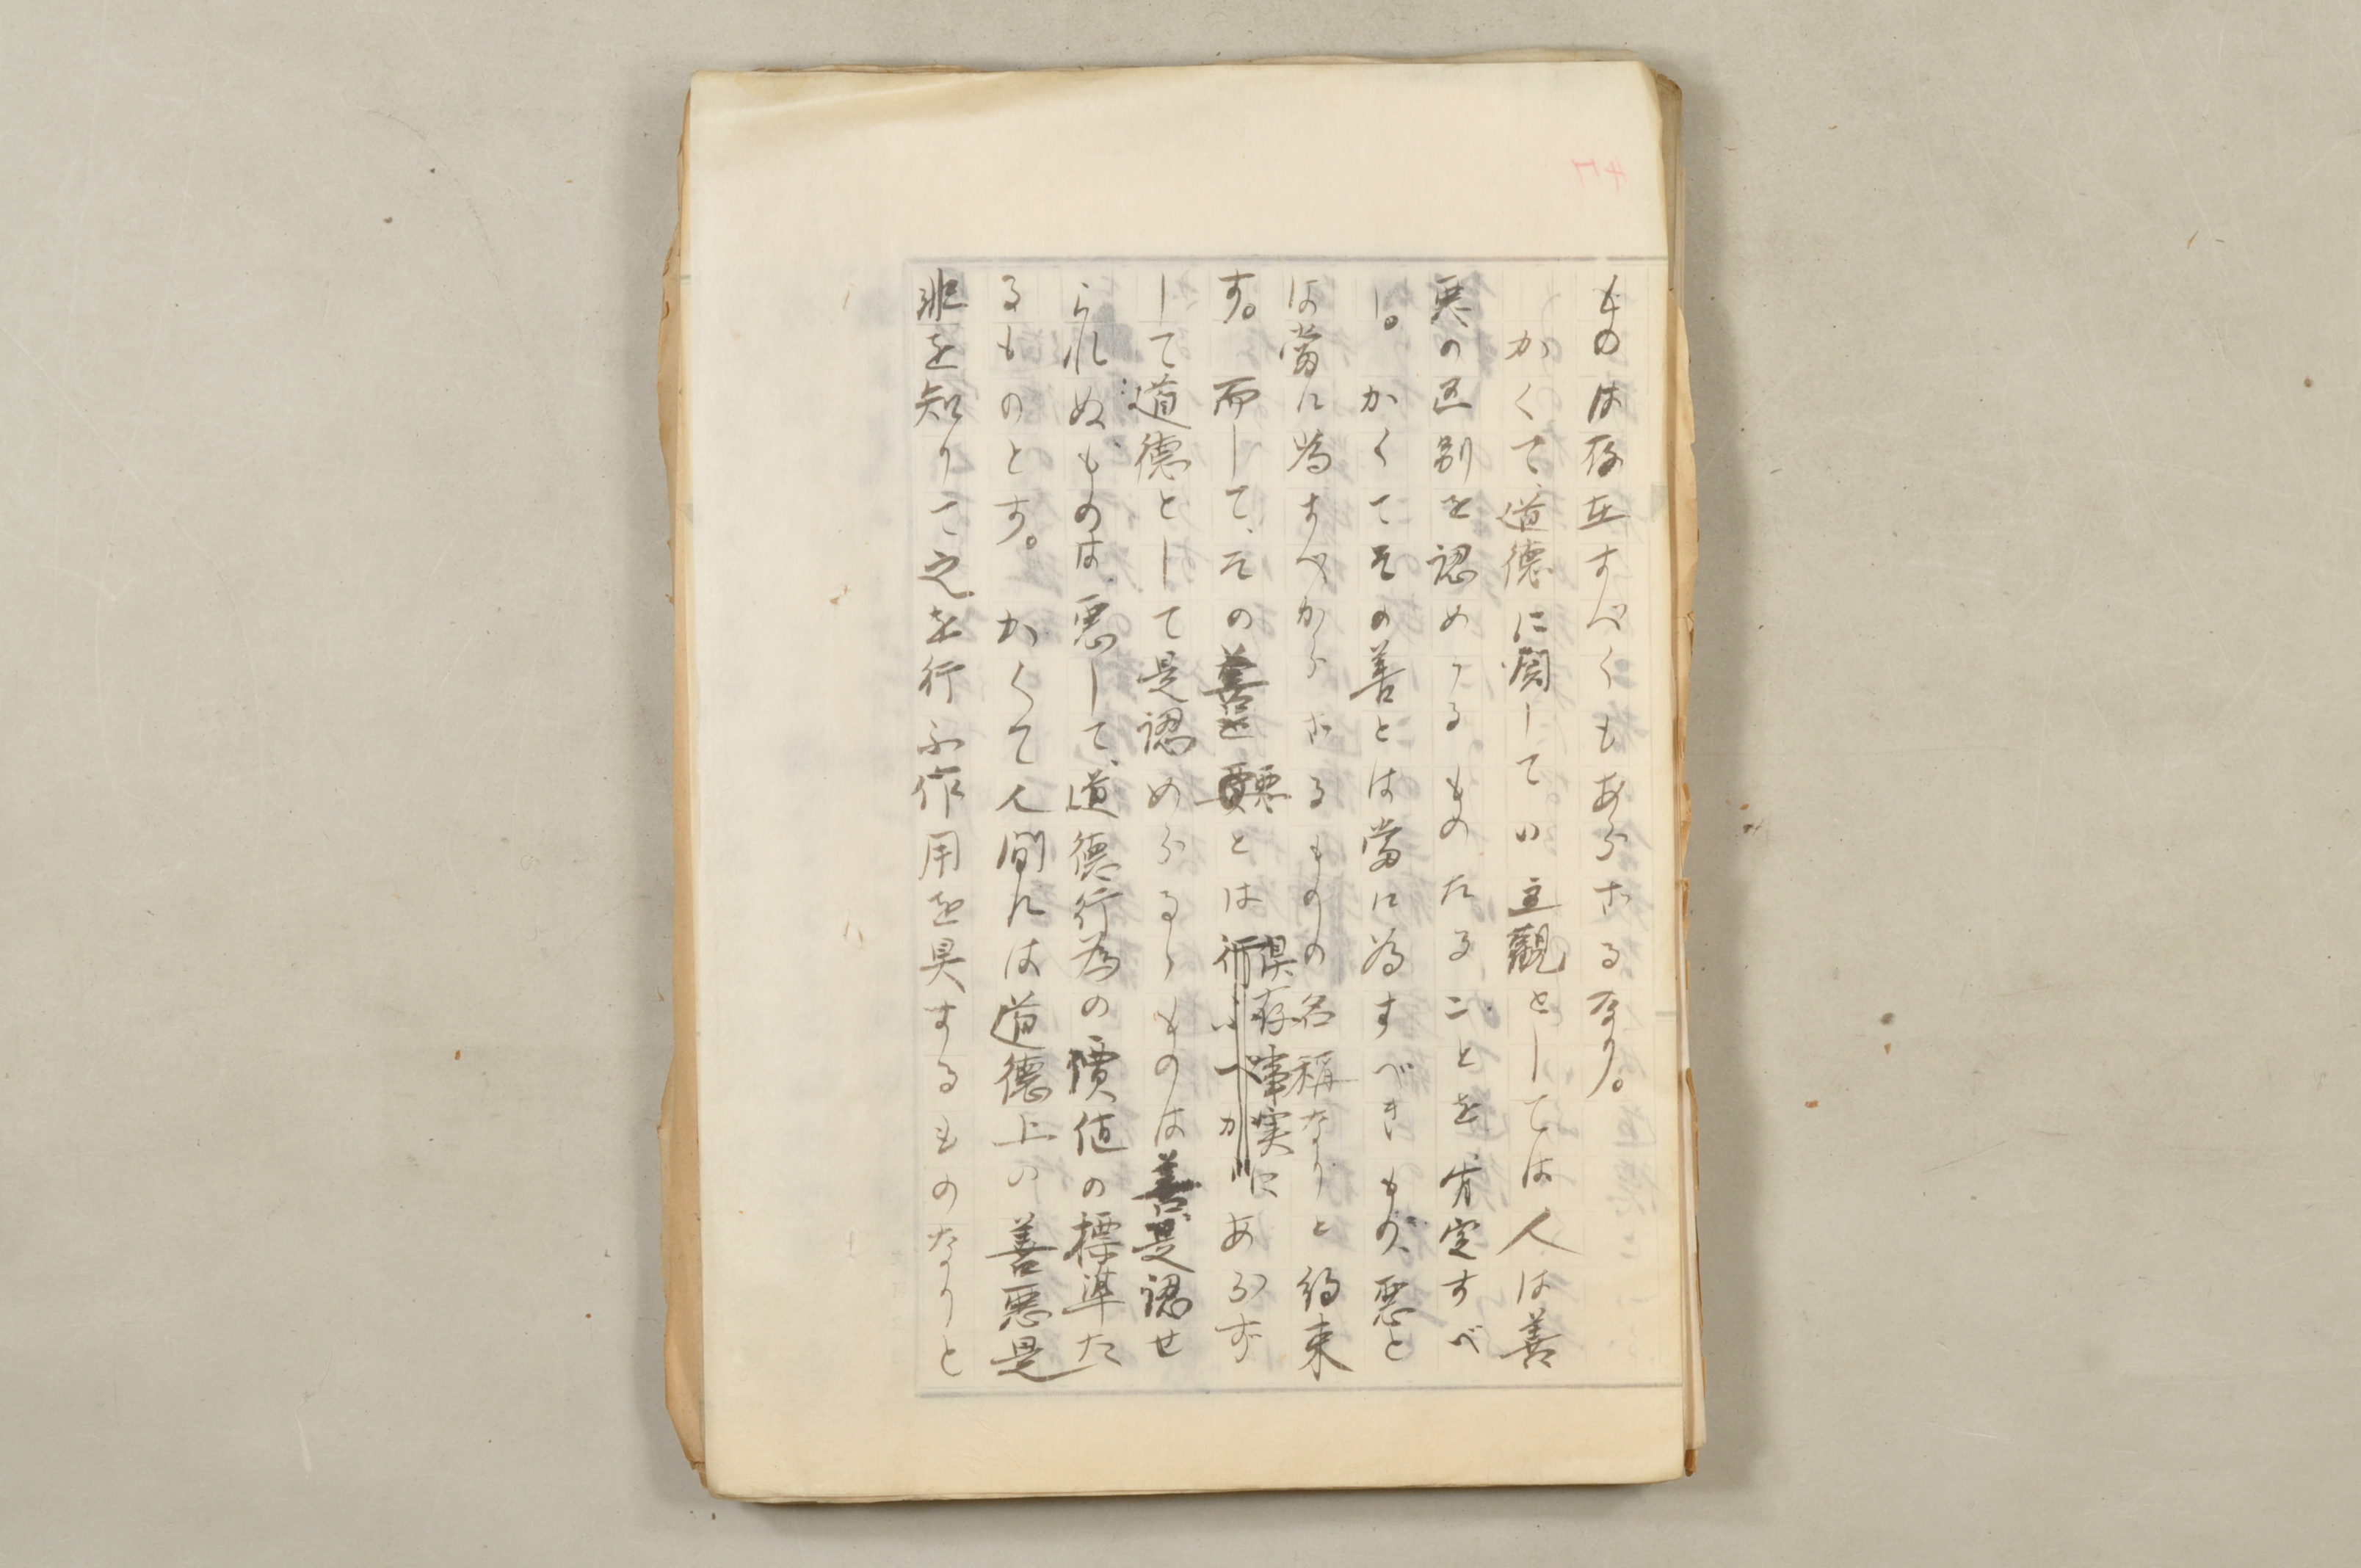 ものは存在すべくもあらざるなり。
かくて、道德に関してい主觀としては人は善
悪の区別を認めするものたることを肯定すべ
し。かくてその善とは當に為すべきもの、悪と
は當に為すべからざるものの名稱なりと約束
す。而して、その悪とは倶存事実にあらず
して道德として是認めらるゝものは善是認せ
られぬものは悪して、道德行為の價値の標準た
るものとす。かくて人間には道德上の善悪是
非を知りて之を行ふ作用を具するものなりと